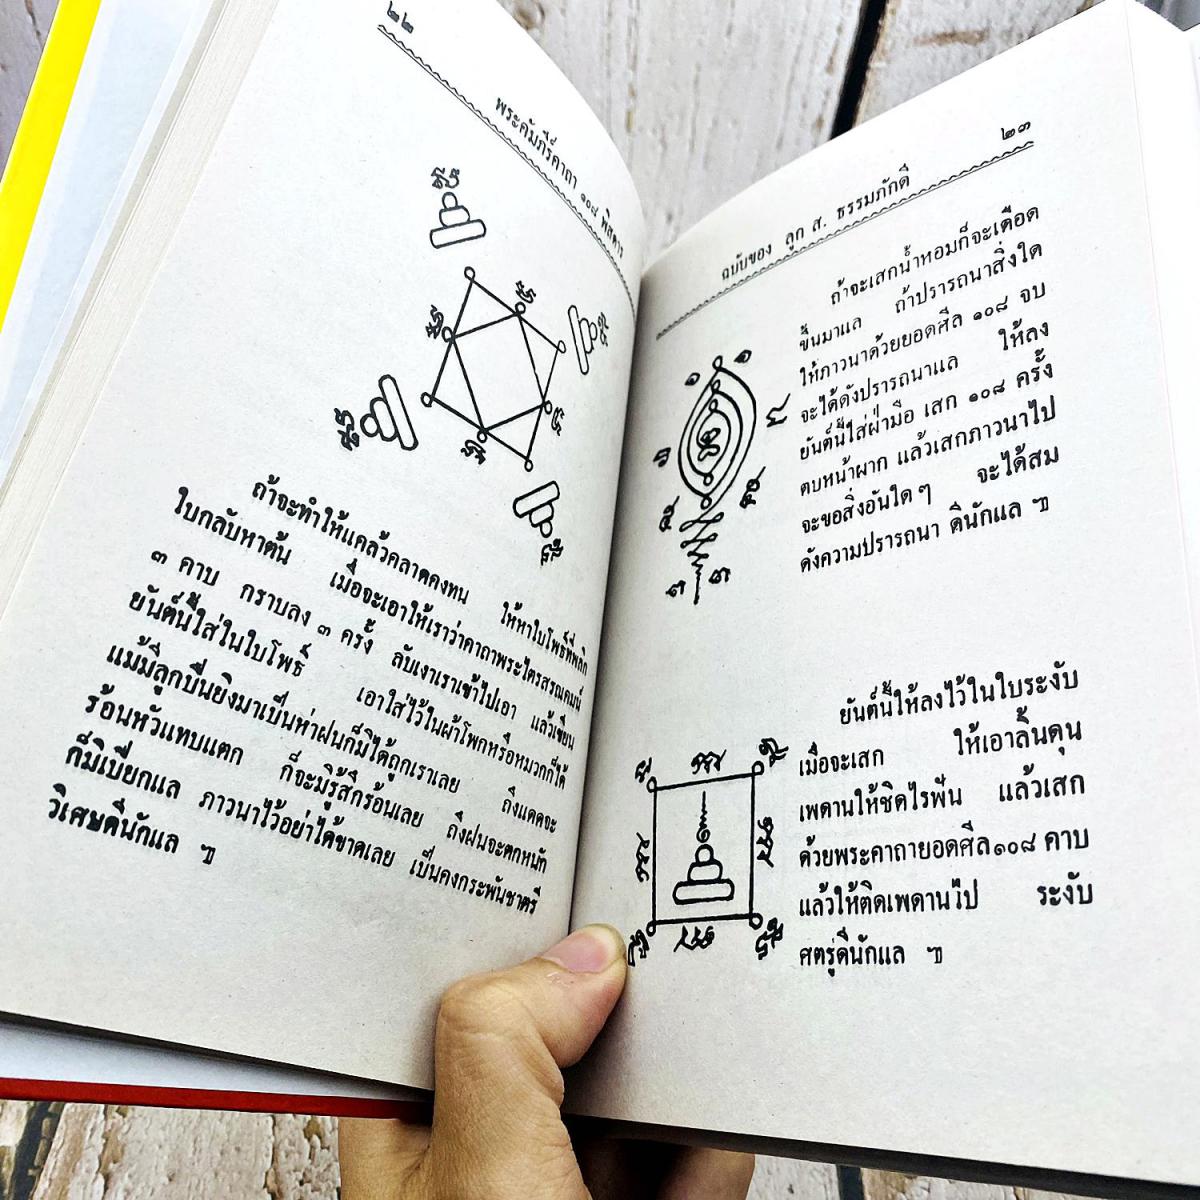 ๒๒
พระคัมภีร์คาถา ๑๐๘ พิสดาร
ถ้าจะทำให้แคล้วคลาดคงทน ให้หาใบโพธิ์ที่พลิก
ใบกลับหาต้น เมื่อจะเอาให้เราว่าคาถาพระไตรสรณคมน์
๓ คาบ กราบลง ๓ ครั้ง ลับเงาเราเข้าไปเอา แล้วเขียน
ยันต์นี้ใส่ในใบโพธิ์ เอาใส่ไว้ในผ้าโพกหรือหมวกก็ได้
แม้มีลูกปืนยิงมาเป็นห่าฝนก็มิได้ถูกเราเลย ถึงแดดจะ
ร้อนหัวแทบแตก ก็จะมิรู้สึกร้อนเลย ถึงฝนจะตกหนัก
ก็มิเปียกแล ภาวนาไว้อย่าได้ขาดเลย เป็นคงกระพันชาตรี
วิเศษดีนักแล ๚
๒๓
ฉบับของ ลูก ส. ธรรมภักดี
ถ้าจะเสกน้ำหอมก็จะเดือด
ขึ้นมาแล ถ้าปรารถนาสิ่งใด
ให้ภาวนาด้วยยอดศีล ๑๐๘ จบ
จะได้ดังปรารถนาแล ให้ลง
ยันต์นี้ใส่ฝ่ามือ เสก ๑๐๘ ครั้ง
ตบหน้าผาก แล้วเสกภาวนาไป
จะขอสิ่งอันใดๆ จะได้สม
ดังความปรารถนา ดีนักแล ๚
ยันต์นี้ให้ลงไว้ในใบระงับ
เมื่อจะเสก ให้เอาลิ้นดุน
เพดานให้ชิดไรฟัน แล้วเสก
ด้วยพระคาถายอดศีล๑๐๘ คาบ
แล้วให้ติดเพดานไป ระงับ
ศตรู่ดีนักแล ๚